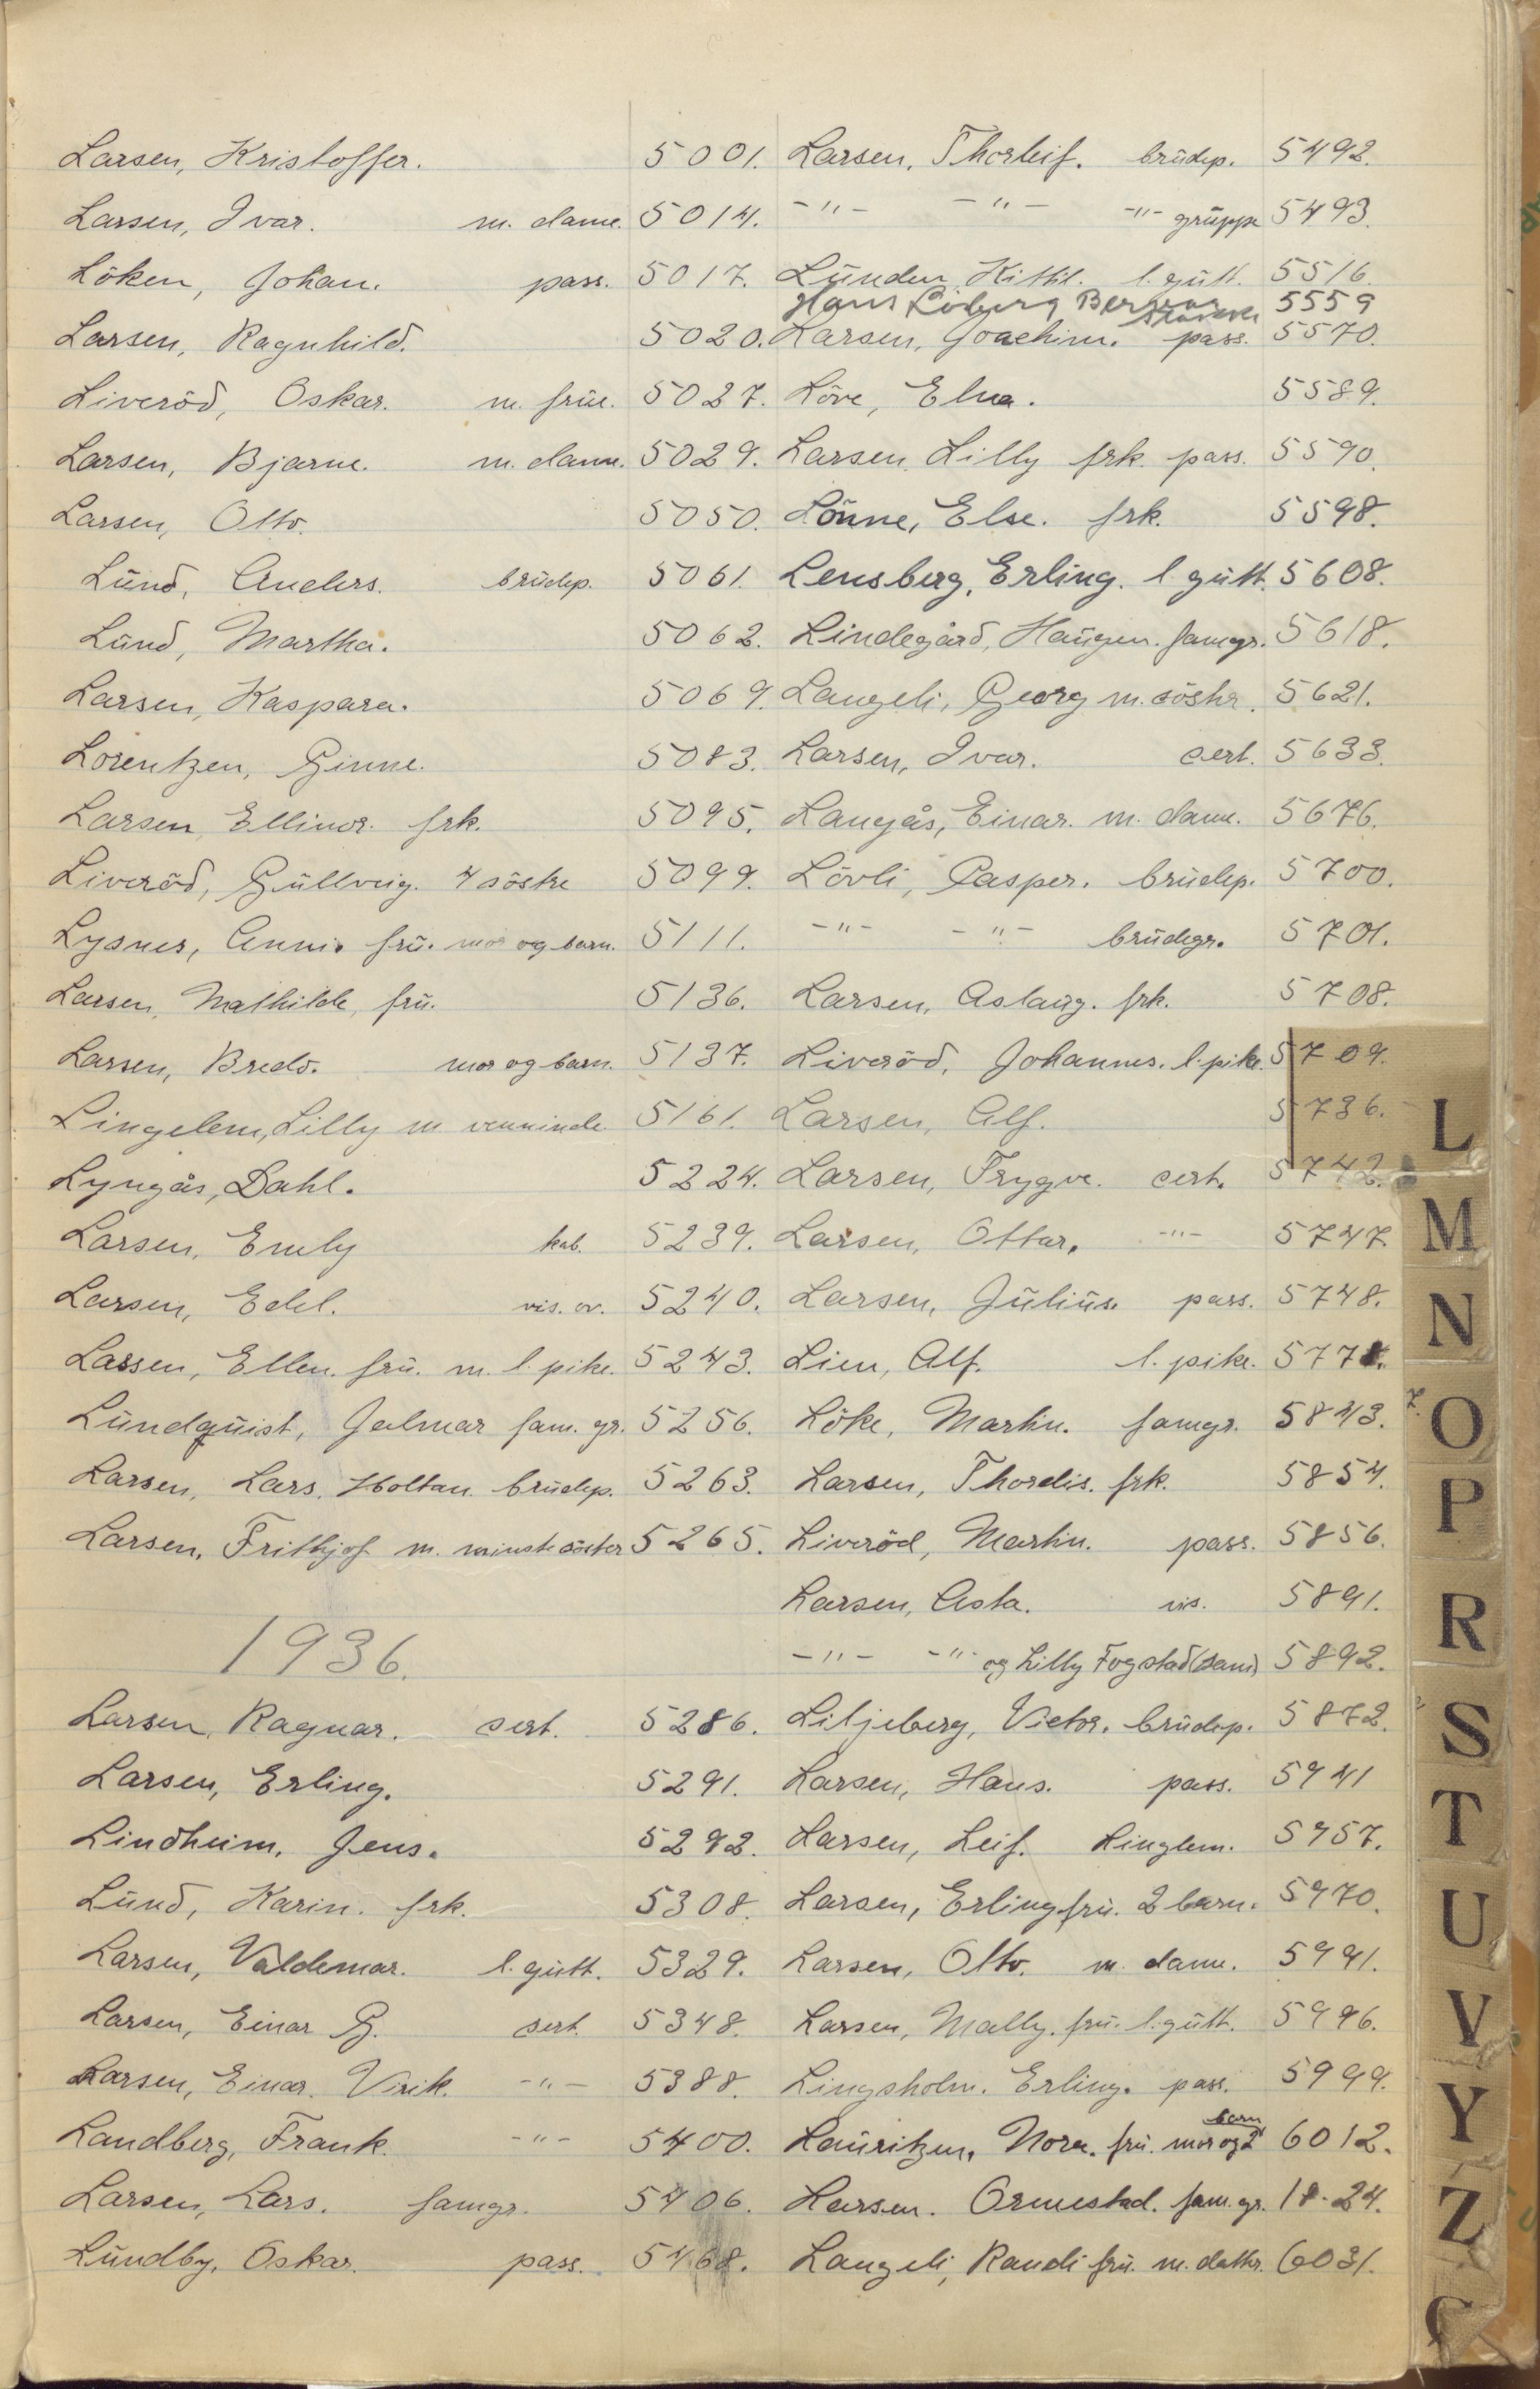 Larsen, Kristoffer. 5001.
Larsen, Ivar. m. dame. 5014.
Löken, Johan. pass. 5017.
Larsen, Ragnhild. 5020.
Liveröd, Oskar. m. früe. 5027.
Larsen, Bjarne. m. dame. 5029.
Larsen, Otto. 5050.
Lünd, Anders. brüdep. 5061.
Lünd, Martha. 5062.
Larsen, Kaspara. 5069.
Lorentzen, Ginne. 5083.
Larsen, Ellinor. frk. 5095.
Liveröd, Güllveig. 4 söstre 5099.
Lysnes, Anni. frü. mor og barn. 5111.
Larsen, Mathilde, frü. 5136.
Larsen, Bredo. mor og barn. 5137.
Lingelem, Lilly m venninde. 5161.
Lyngås, Dahl. 5224.
Larsen, Emely kab. 5239.
Larsen, Edel. vis. ov. 5240.
Lassen, Ellen. frü. m. l. pike. 5243.
Lündqüist, Jalmar fam. gr. 5256.
Larsen, Lars. Holtan brüdep. 5263.
Larsen, Frithjof m. minste söster 5265.
1936.
Larsen, Ragnar. sert. 5286.
Larsen, Erling. 5291.
Lindheim, Jens. 5292.
Lünd, Karin. frk. 5308.
Larsen, Valdemar. l. gütt. 5329.
Larsen, Einar G. sert. 5348.
Larsen, Einar. Virik. -"- 5388.
Landberg, Frank. -"- 5400.
Larsen, Lars. famgr. 5406.
Lündby, Oskar. pass. 5468.
Larsen, Thorleif. brüdep. 5492.
-"- -"- -"- grüppe 5493.
Lünden, Kittil. l. gütt. 5516.
Hans Löberg 5559
Larsen, Joachim. pass. 5570.
Löve, Elna. 5589.
Larsen, Lilly frk. pass. 5590.
Lönne, Else. frk. 5598.
Lensberg, Erling. l. gütt. 5608.
Lindegård, Haügen. famgr. 5618.
Langeli, Georg m. söster. 5621.
Larsen, Ivar. sert. 5633.
Langås, Einar. m. dame. 5676.
Lövli, Casper. brüdep. 5700.
-"- -"- brüdegr. 5701.
Larsen, Aslaüg. frk. 5708.
Liveröd, Johannes. l. pike. 5709.
Larsen, Alf. 5736.
Larsen, Trygve. sert. 5742.
Larsen, Ottar. -"- 5747.
Larsen, Jüliüs. pass. 5748.
Lien, Alf. l. pike. 577
Löke, Martin. famgr. 5843.
Larsen, Thordis. frk. 5854.
Liveröd, Martin. pass. 5856.
Larsen, Asta. vis. 5891.
-"- -"- og Lilly Fogstad (sam) 5892.
Liljeberg, Victor. brüdep. 5872.
Larsen, Hans. pass. 5941
Larsen, Leif. Linglem. 5957.
Larsen, Erling frü. 2 barn. 5970.
Larsen, Otto. m. dame. 5991.
Larsen, Mally. frü. l. gütt. 5996.
Lingsholm. Erling. pass. 5999.
Laüritzen, Nora. frü. mor og 2 barn 6012.
Larsen. Ormestad. fam. gr. 18-24.
Langeli, Randi frü. m. datter. 6031.
L
M
N
O
P
R
S
T
U
V
Y
Z